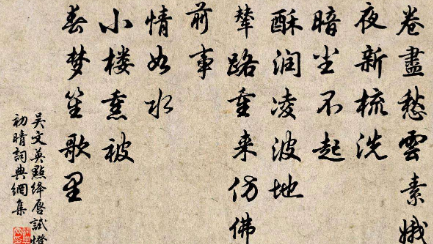 卷盡愁雲素娥
夜新梳洗
暗尘不起
酥润凌波地
輦路重来仿佛
前事
情如水
小楼熏被
春梦笙歌里
吴文英點絳唇試燈
初晴詞典網集